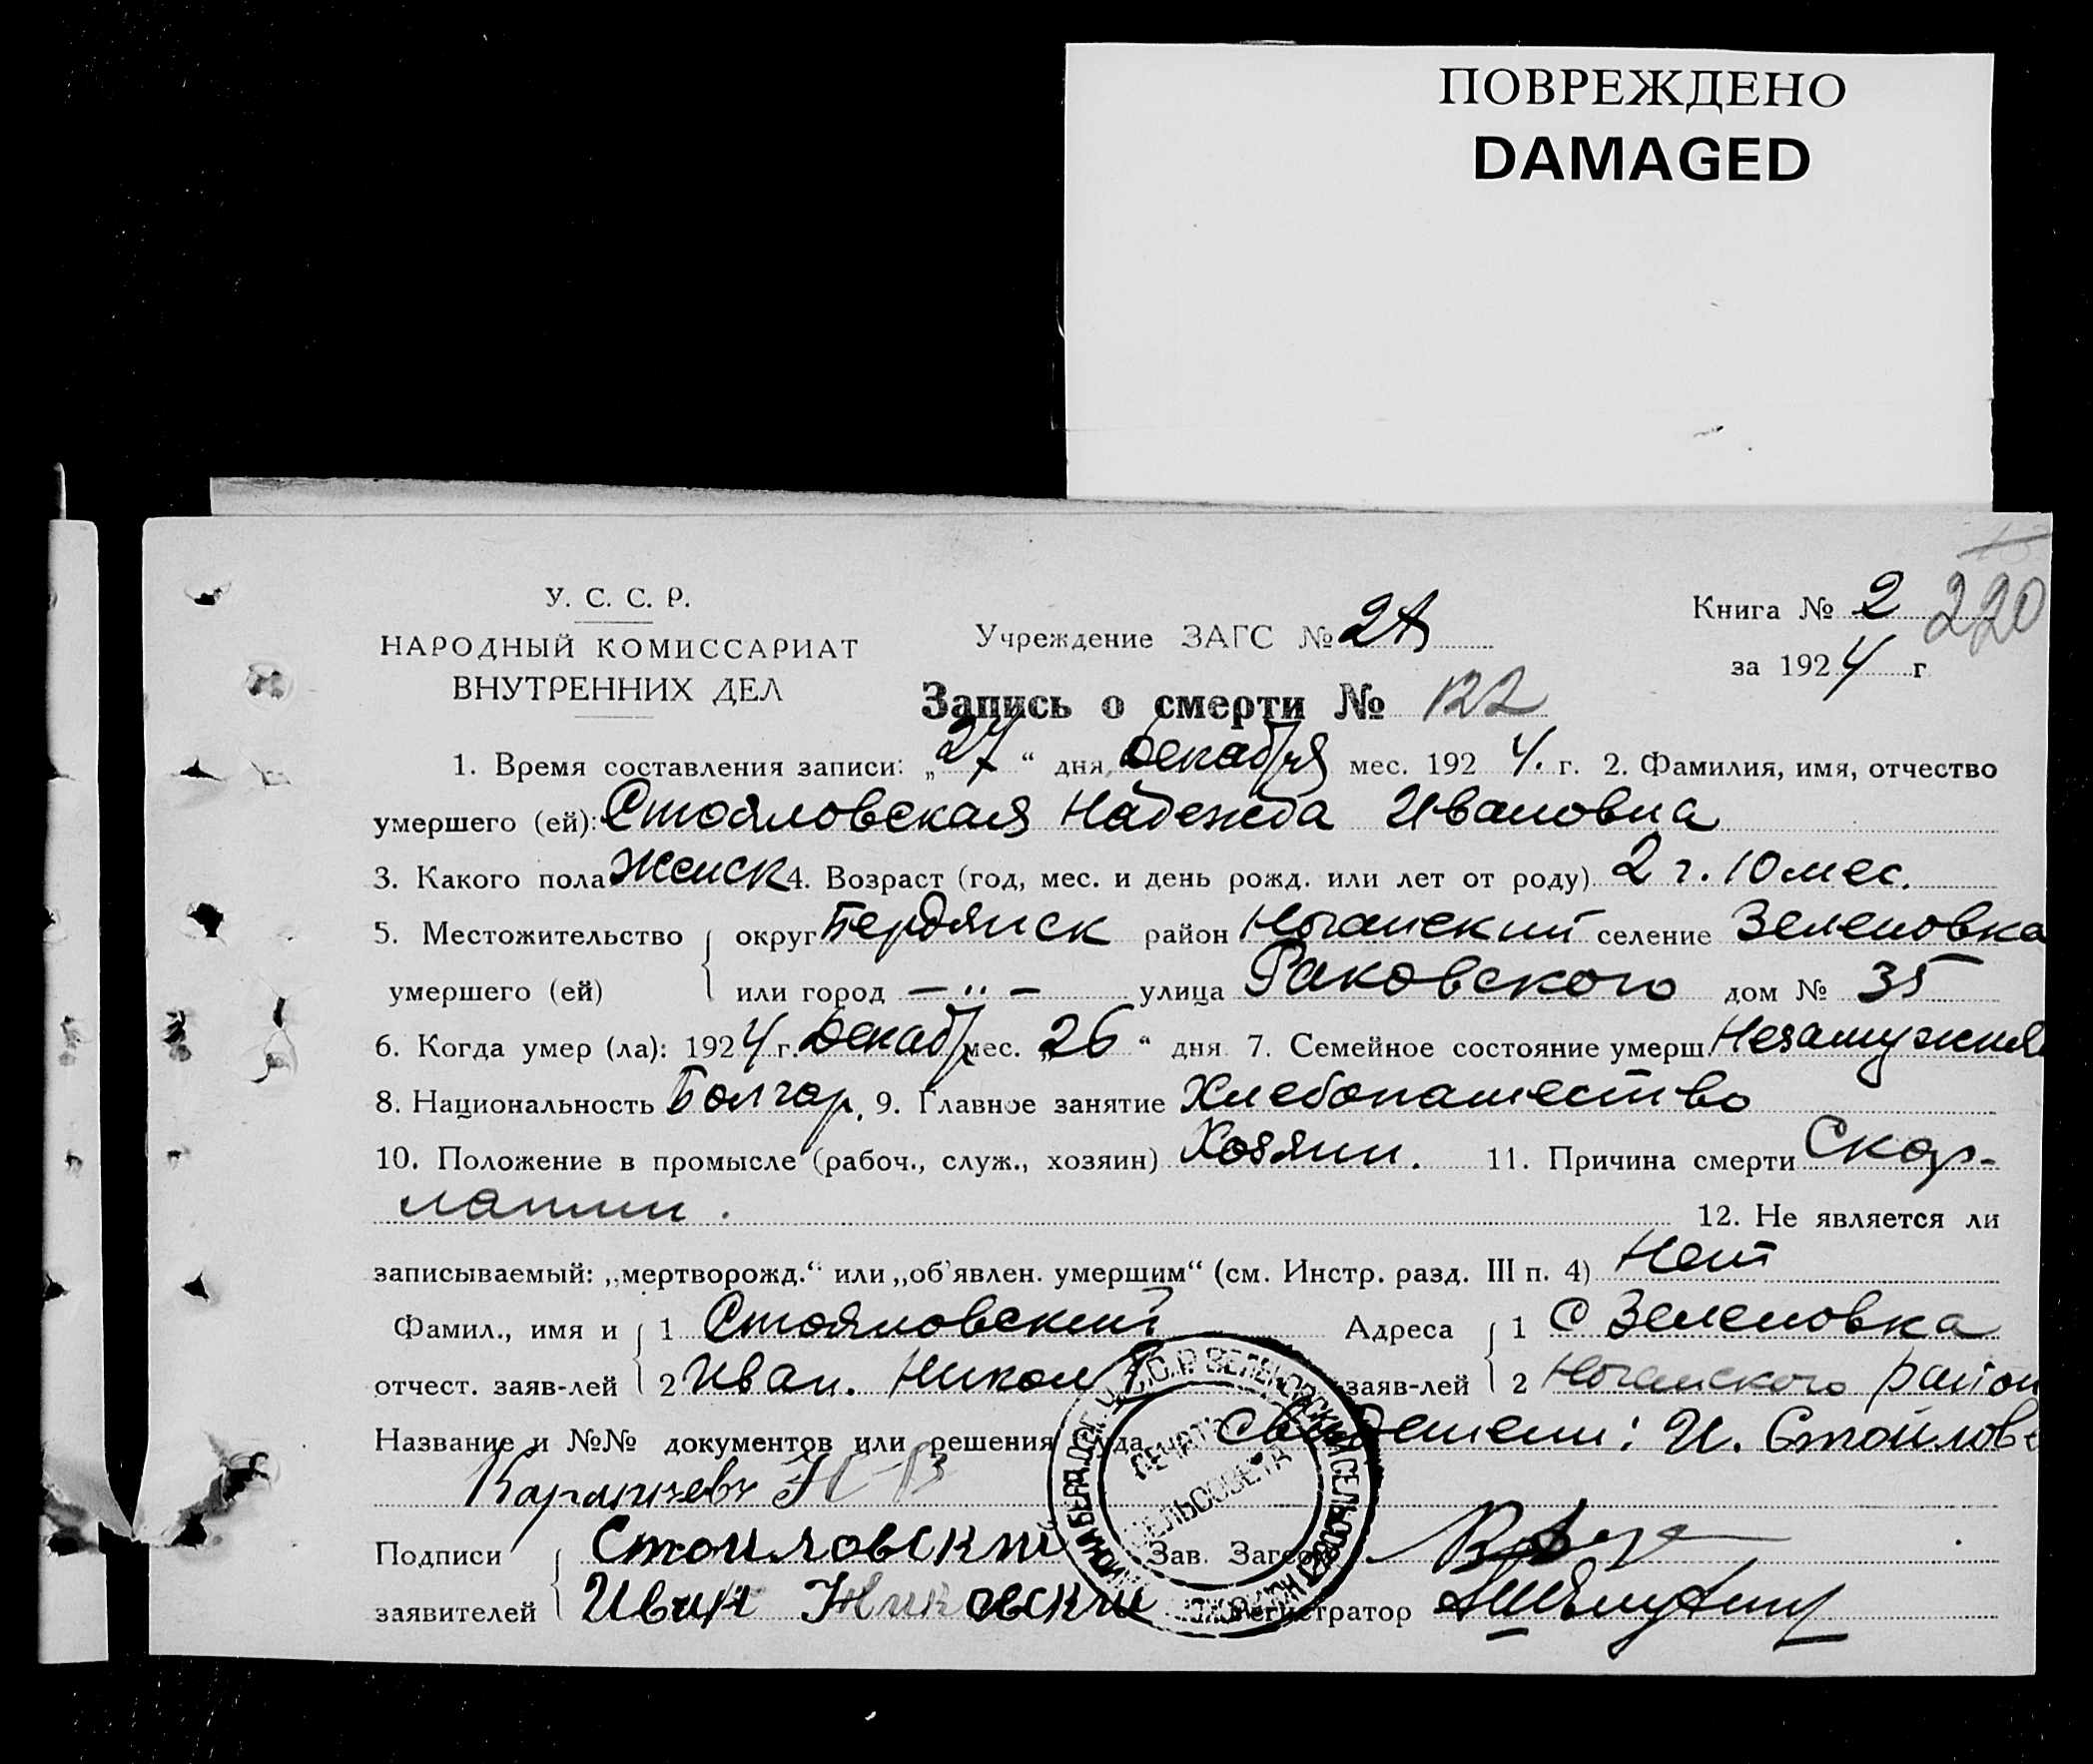 ПОВРЕЖДЕНО
DAMAGED
220
У. С. С. Р.
НАРОДНЫЙ КОМИССАРИАТ
ВНУТРЕННИХ ДЕЛ
Учреждение ЗАГС №
Книга № 2
за 1924 г
Запись о смерти № 122
1. Время составления записи: „27“ дня декабря мес. 1924. г. 2. Фамилия, имя, отчество
умершего (ей): Стояловская Надежда Ивановна
3. Какого пола Женск 4. Возраст (год, мес. и день рожд. или лет от роду) 2 г. 10 мес.
5. Местожительство округ Бердянск район Ногайский селение Зеленовка
умершего (ей) или город — „ — улица Раковского дом № 35
6. Когда умер (ла): 1924 г. Декабр мес. „26“ дня 7. Семейное состояние умерш. Незамужняя
8. Национальность Болгар. 9. Главное занятие Хлебопашество
10. Положение в промысле (рабоч., служ., хозяин) Хозяин. 11. Причина смерти Скар-
латин.
12. Не является ли
записываемый: „мертворожд.“ или „об'явлен. умершим“ (см. Инстр. разд. III п. 4) Нет
Фамил., имя и 1 Стояловский Адреса 1 С Зеленовка
отчест. заяв-лей 2 Иван. Никол заяв-лей 2 Ногайского район
Название и №№ документов или решения суда Свидетели: И. Стоилов
Подписи Стоиловский Зав. Загсом
заявителей Иван Регистратор
ПЕЧАТЬ
СЕЛЬСОВЕТА